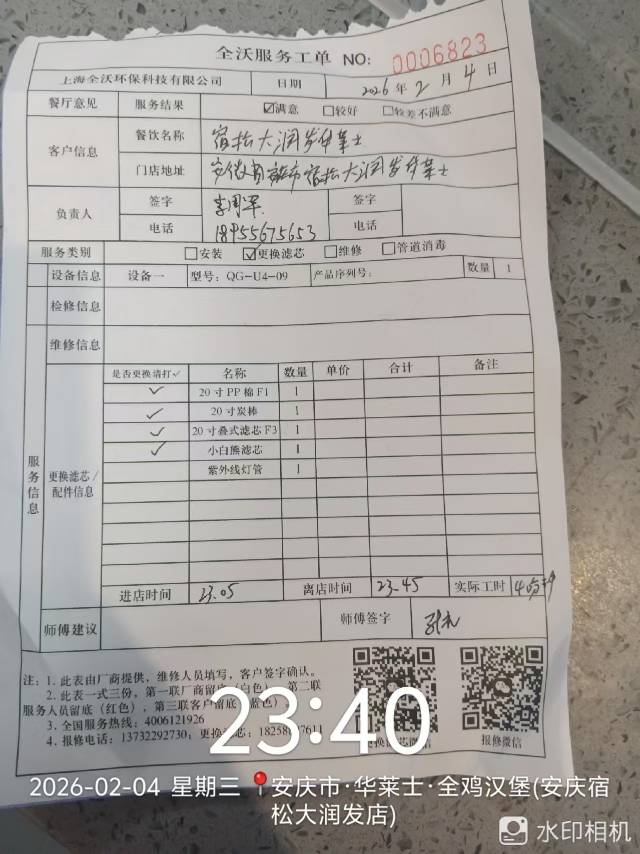 全沃服务工单 NO: 0006823
上海全沃环保科技有限公司 日期 2026年2月4日
餐厅意见 服务结果 ☑满意 □较好 □较差不满意
客户信息 餐饮名称 宿松大润发华莱士
门店地址 安徽省安庆市宿松大润发华莱士
负责人 签字 签字
电话 18955675653 电话
服务类别 □安装 ☑更换滤芯 □维修 □管道消毒
设备信息 设备一 型号: QG-U4-09 产品序列号: 数量 1
检修信息
维修信息
服务信息
更换滤芯/配件信息
是否更换请打✓ 名称 数量 单价 合计 备注
✓ 20寸PP棉F1 1
✓ 20寸炭棒 1
✓ 20寸叠式滤芯F3 1
✓ 小白熊滤芯 1
紫外线灯管 1
进店时间 23.05 离店时间 23.45 实际工时 40分钟
师傅建议 师傅签字
注: 1. 此表由厂商提供, 维修人员填写, 客户签字确认。
2. 此表一式三份, 第一联厂商留底(白色), 第二联
服务人员留底(红色), 第三联客户留底(蓝色)
3. 全国服务热线: 4006121926
4. 报修电话: 13732292730; 更换滤芯:
更换滤芯微信 报修微信
23:40
2026-02-04 星期三 安庆市·华莱士·全鸡汉堡(安庆宿
松大润发店)
水印相机